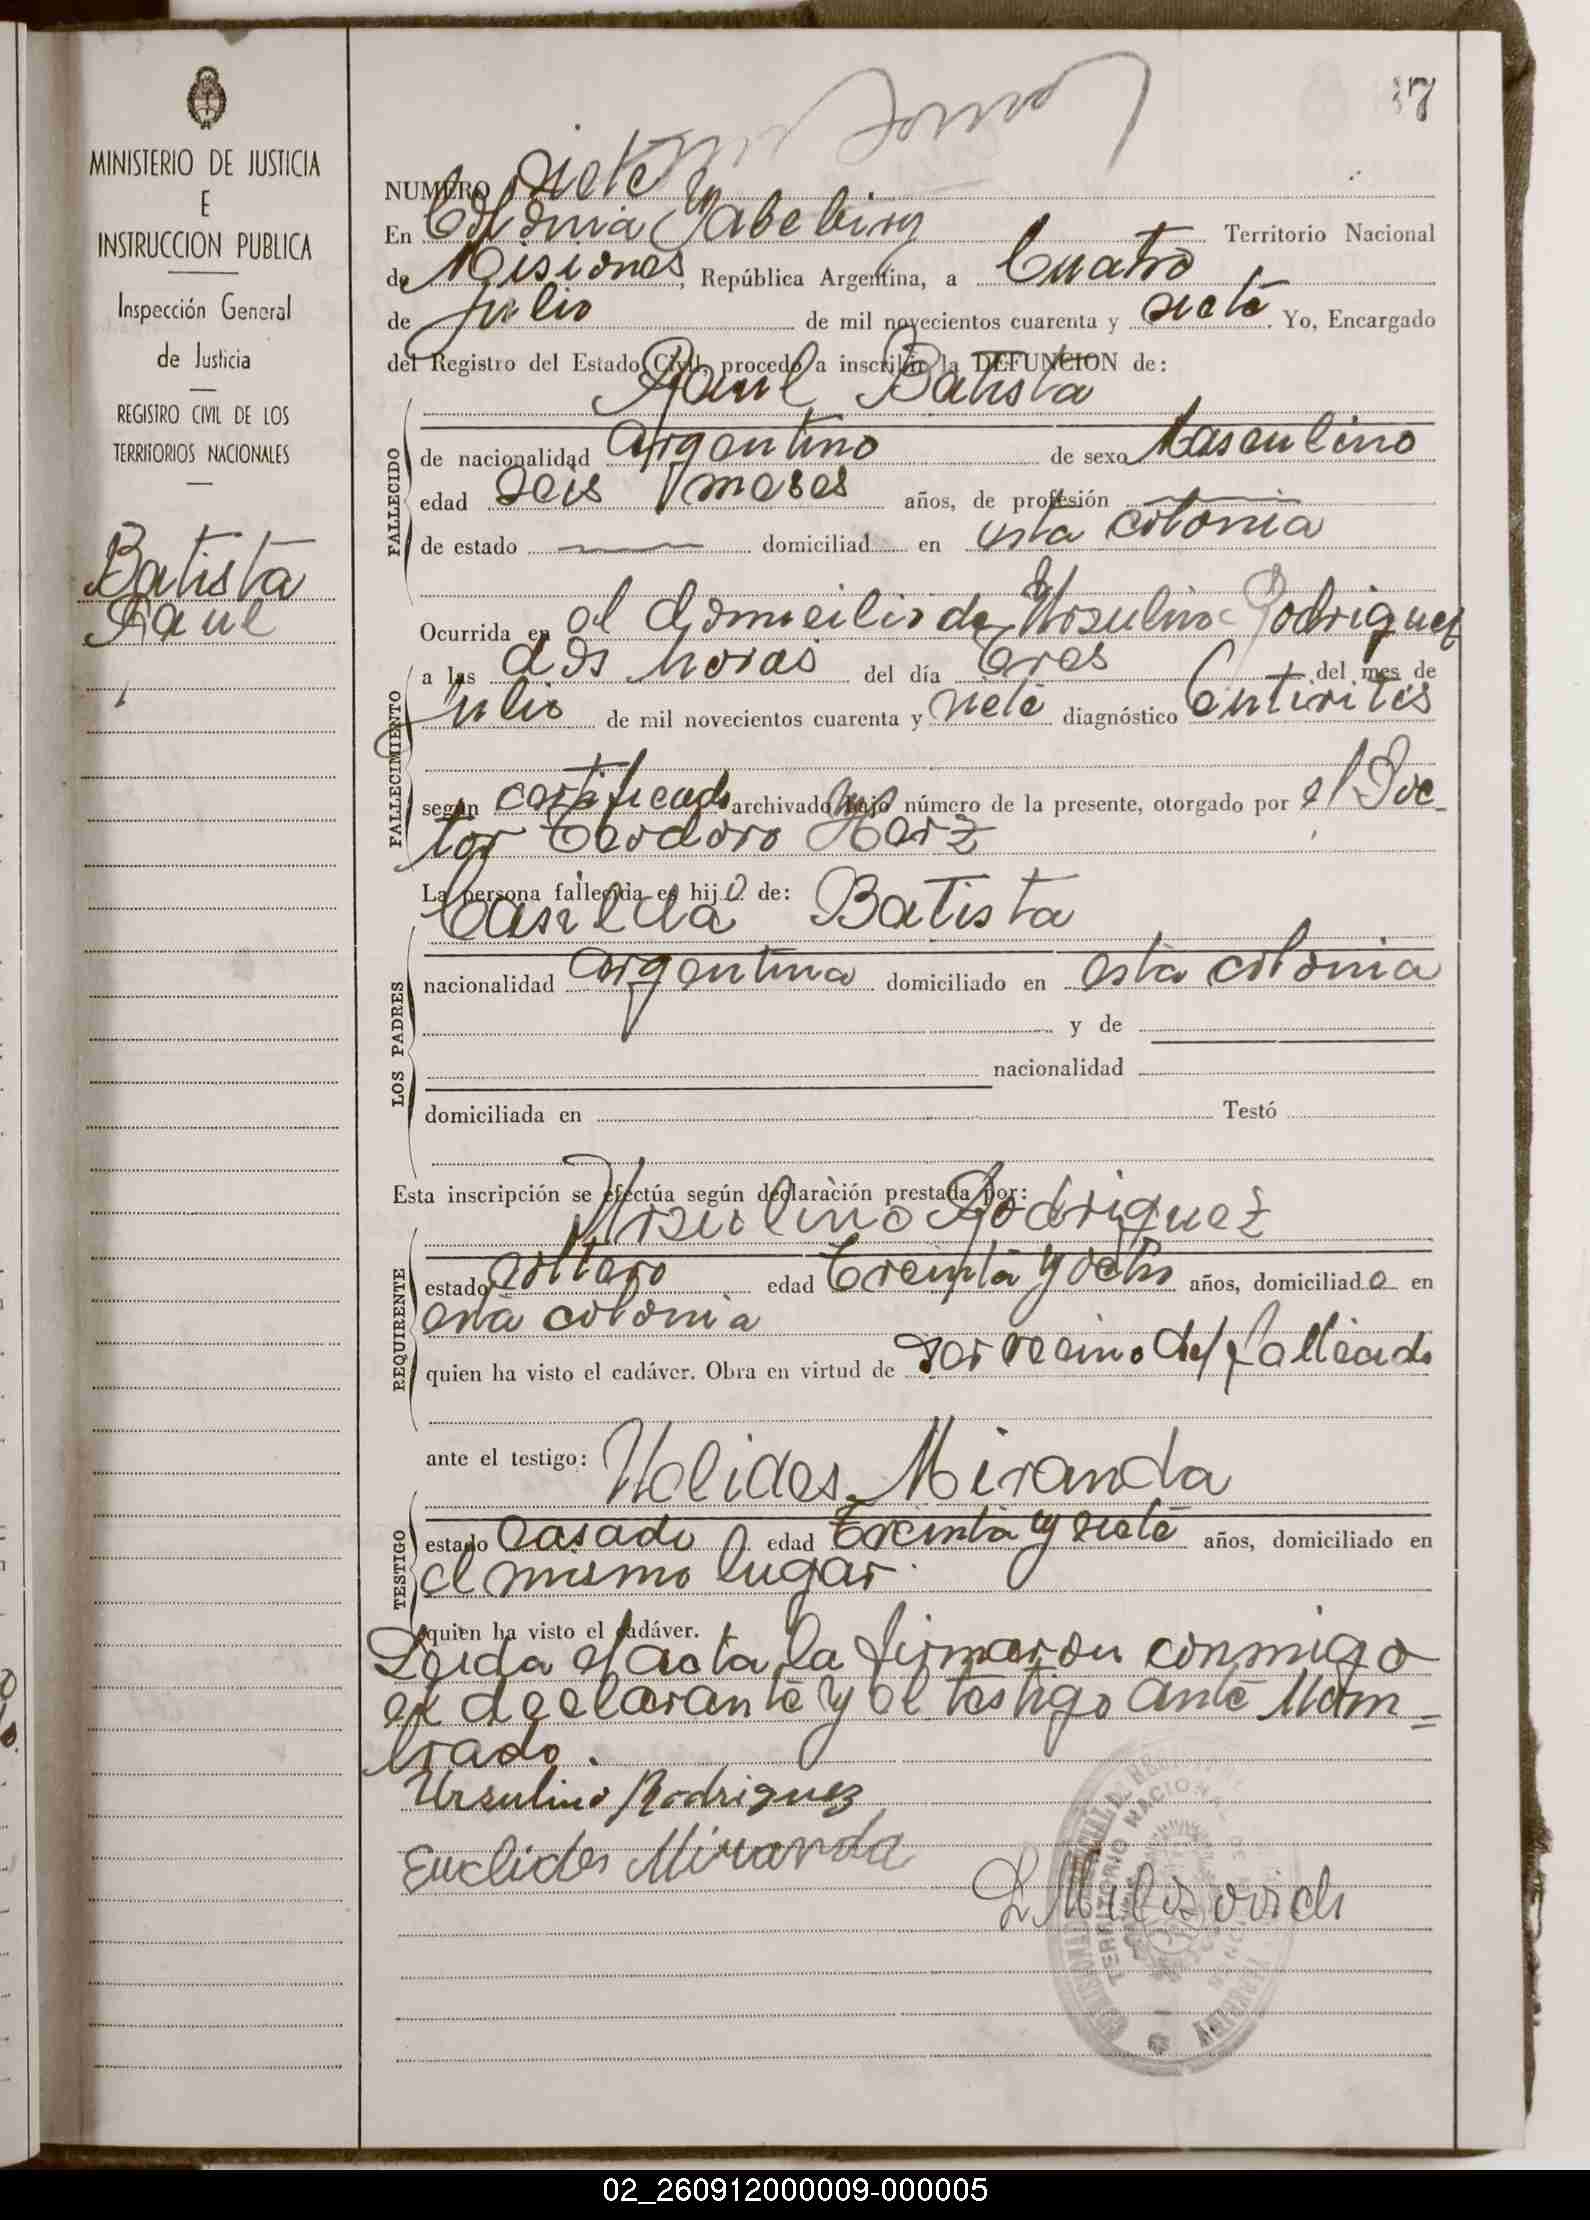 37
MINISTERIO DE JUSTICIA
E
INSTRUCCION PUBLICA
Inspección General
de Justicia
REGISTRO CIVIL DE LOS
TERRITORIOS NACIONALES
Batista
Raul
NUMERO siete
En Colonia Yabebiry Territorio Nacional
de Misiones, República Argentina, a Cuatro
de julio de mil novecientos cuarenta y siete. Yo, Encargado
del Registro del Estado Civil, procedo a inscribir la DEFUNCION de:
Raul Batista
FALLECIDO
de nacionalidad argentino de sexo Masculino
edad Seis meses años, de profesión
de estado domiciliad en esta colonia
Ocurrida en el domicilio de Ursulino Rodriguez
a las dos horas del día tres del mes de
FALLECIMIENTO
Julio de mil novecientos cuarenta y siete diagnóstico Entiritis
según certificado archivado bajo número de la presente, otorgado por el Doc-
tor Teodoro Herz
La persona fallecida es hijo de:
Casilda Batista
LOS PADRES
nacionalidad argentina domiciliado en esta colonia
y de
nacionalidad
domiciliada en Testó
Esta inscripción se efectúa según declaración prestada por:
Ursulino Rodriguez
REQUIRENTE
estado soltero edad Treinta y ocho años, domiciliado en
esta colonia
quien ha visto el cadáver. Obra en virtud de ser vecino del fallecido
ante el testigo:
Uclides Miranda
TESTIGO
estado casado edad Treinta y siete años, domiciliado en
el mismo lugar.
quien ha visto el cadáver.
Leida el acta la firmaron conmigo
el declarante y el testigo ante Nom=
brado.
Ursulino Rodriguez
Euclides Miranda
TERRITORIO NACIONAL DE
02_260912000009-000005